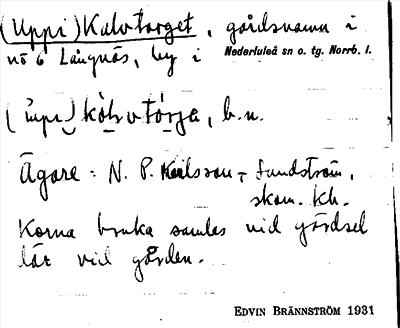 (Uppi) Kalvtorget, gårdsnamn i
nö 6 Långnäs, by i Nederluleå sn o. tg. Norrb. l.
b.n.
Ägare: N. P. Karlsson - Sundström,
skom. Kh.
Korna bruka samlas vid gärdsel
vid gården.
EDVIN BRÄNNSTRÖM 1931